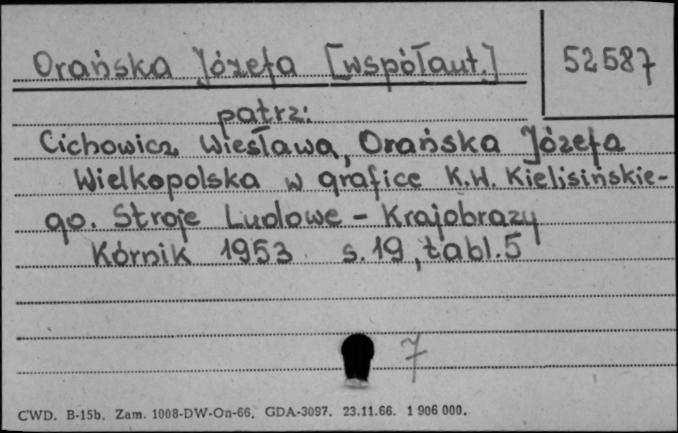 Orańska Józefa [współaut.]
52587
patrz:
Cichowicz Wiesława, Orańska Józefa
Wielkopolska w grafice K.W. Kielisińskie-
go. Stroje Ludowe - Krajobrazy
Kórnik 1953 s.19, tabl.5
7
CWD. B-15b. Zam. 1008-DW-On-66. GDA-3097. 23.11.66. 1 906 000.